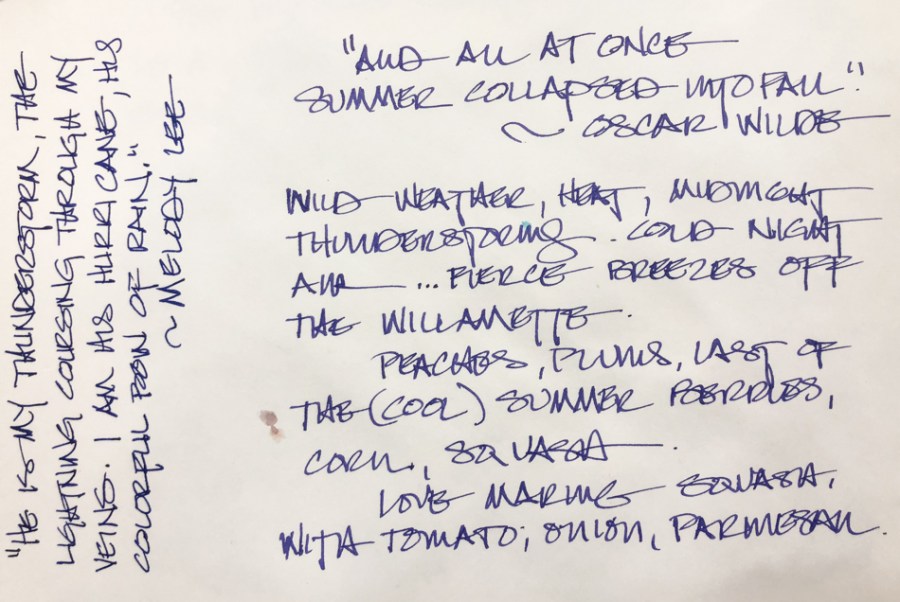 "AND ALL AT ONCE
SUMMER COLLAPSED INTO FALL".
~ OSCAR WILDE
WILD WEATHER, HEAT, MIDNIGHT
THUNDERSTORMS. COLD NIGHT
AIR ... FIERCE BREEZES OFF
THE WILLAMETTE.
PEACHES, PLUMS, LAST OF
THE (COOL) SUMMER BERRIES,
CORN, SQUASH.
LOVE MAKING SQUASH,
WITH TOMATO, ONION, PARMESAN.
"HE IS MY THUNDERSTORM, THE
LIGHTNING COURSING THROUGH MY
VEINS. I AM HIS HURRICANE, HIS
COLORFUL POEM OF RAIN."
~ MELODY LEE